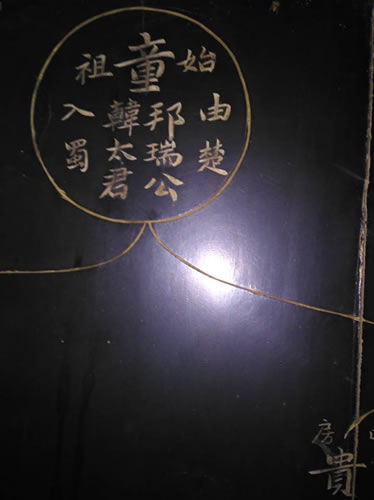 始童祖
由楚
邦瑞公
韓太君
入蜀
房
貴